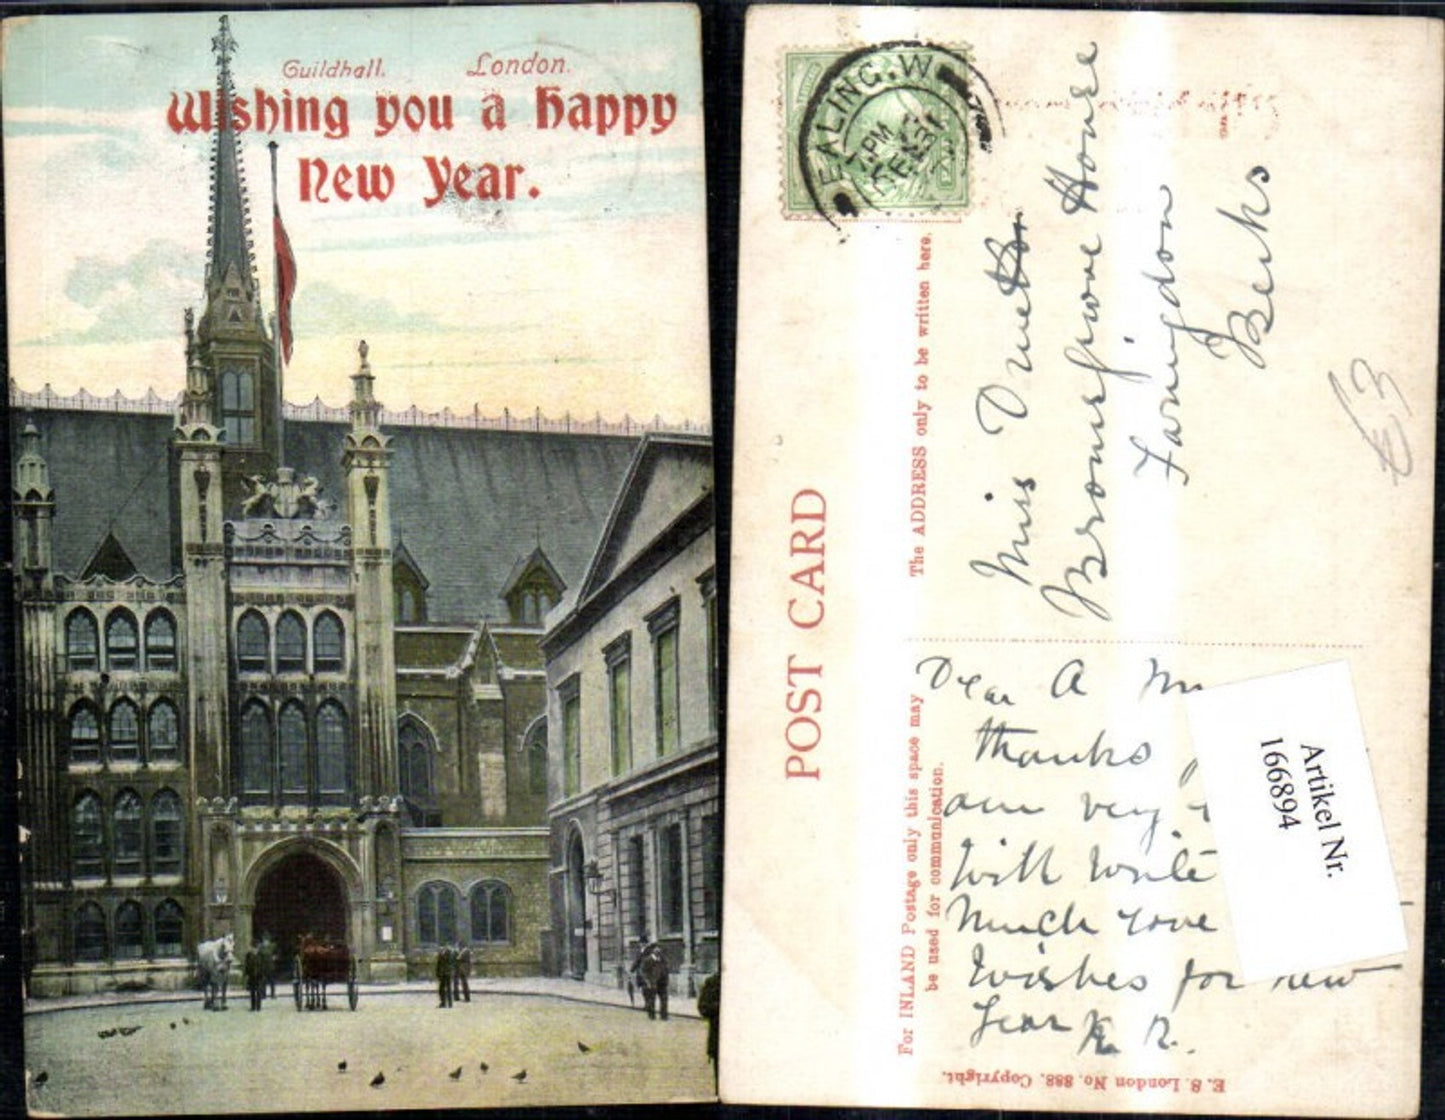 Guildhall. London.
Wishing you a happy
New Year.
EALING. W
PM
DE 31
POST CARD
The ADDRESS only to be written here.
For INLAND Postage only this space may
be used for communication.
Miss
Bromsgrove House
Faringdon
Berks
£3
Dear A
thanks
am very
will write
Much love
Wishes for new
Year
Artikel Nr.
166894
E. S. London No. 888. Copyright.